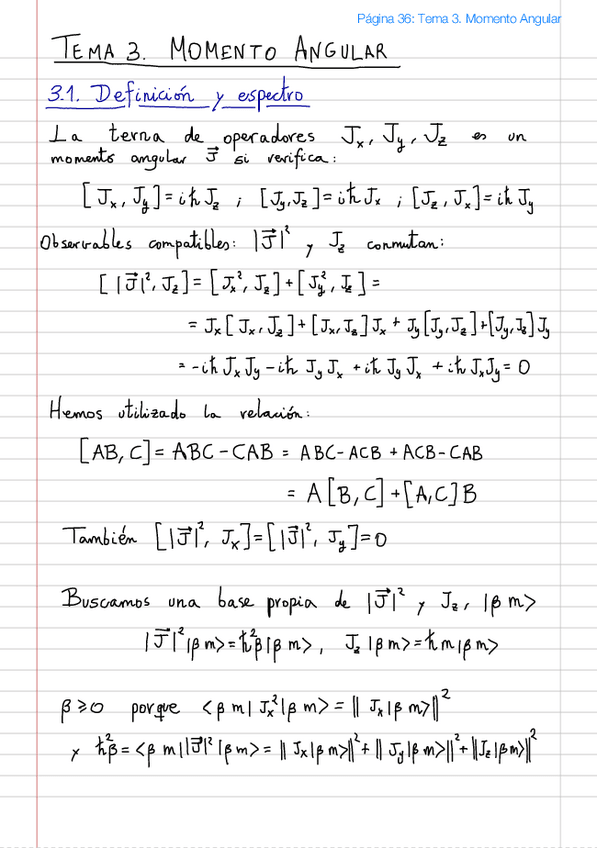 Página 36: Tema 3. Momento Angular
TEMA 3. MOMENTO ANGULAR
3.1. Definición y espectro
La terna de operadores Jx, Jy, Jz es un
momento angular J⃗ si verifica:
[Jx, Jy] = iħ Jz ; [Jy, Jz] = iħ Jx ; [Jz, Jx] = iħ Jy
Observables compatibles: |J⃗|² y Jz conmutan:
[|J⃗|², Jz] = [Jx², Jz] + [Jy², Jz] =
= Jx[Jx, Jz] + [Jx, Jz]Jx + Jy[Jy, Jz] + [Jy, Jz]Jy
= -iħ Jx Jy - iħ Jy Jx + iħ Jy Jx + iħ Jx Jy = 0
Hemos utilizado la relación:
[AB, C] = ABC - CAB = ABC - ACB + ACB - CAB
= A[B, C] + [A, C]B
También [|J⃗|², Jx] = [|J⃗|², Jy] = 0
Buscamos una base propia de |J⃗|² y Jz, |β m>
|J⃗|² |β m> = ħ²β |β m>, Jz |β m> = ħ m |β m>
β ⩾ 0 porque <β m| Jx² |β m> = || Jx |β m> ||²
y ħ²β = <β m| |J⃗|² |β m> = || Jx |β m> ||² + || Jy |β m> ||² + || Jz |β m> ||²